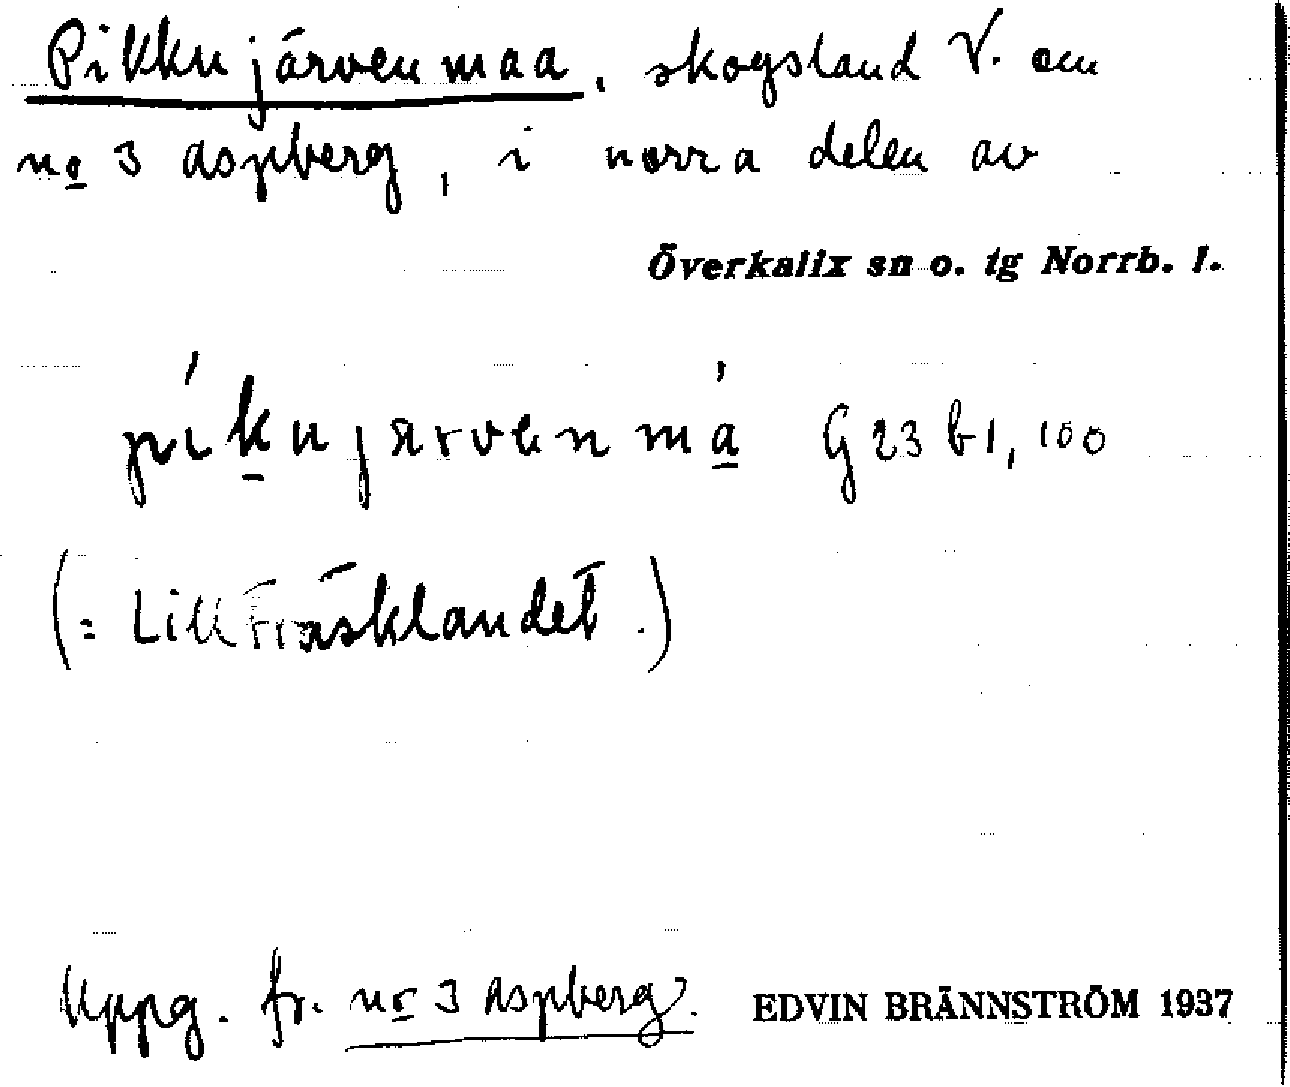 Pikkujärvenmaa, skogsland V. om
no 3 Aspberg, i norra delen av
Överkalix sn o. tg Norrb. l.
píkujarvenmá G23 b1, 100
(= Lillträsklandet.)
Uppg. fr. no 3 Aspberg. EDVIN BRÄNNSTRÖM 1937